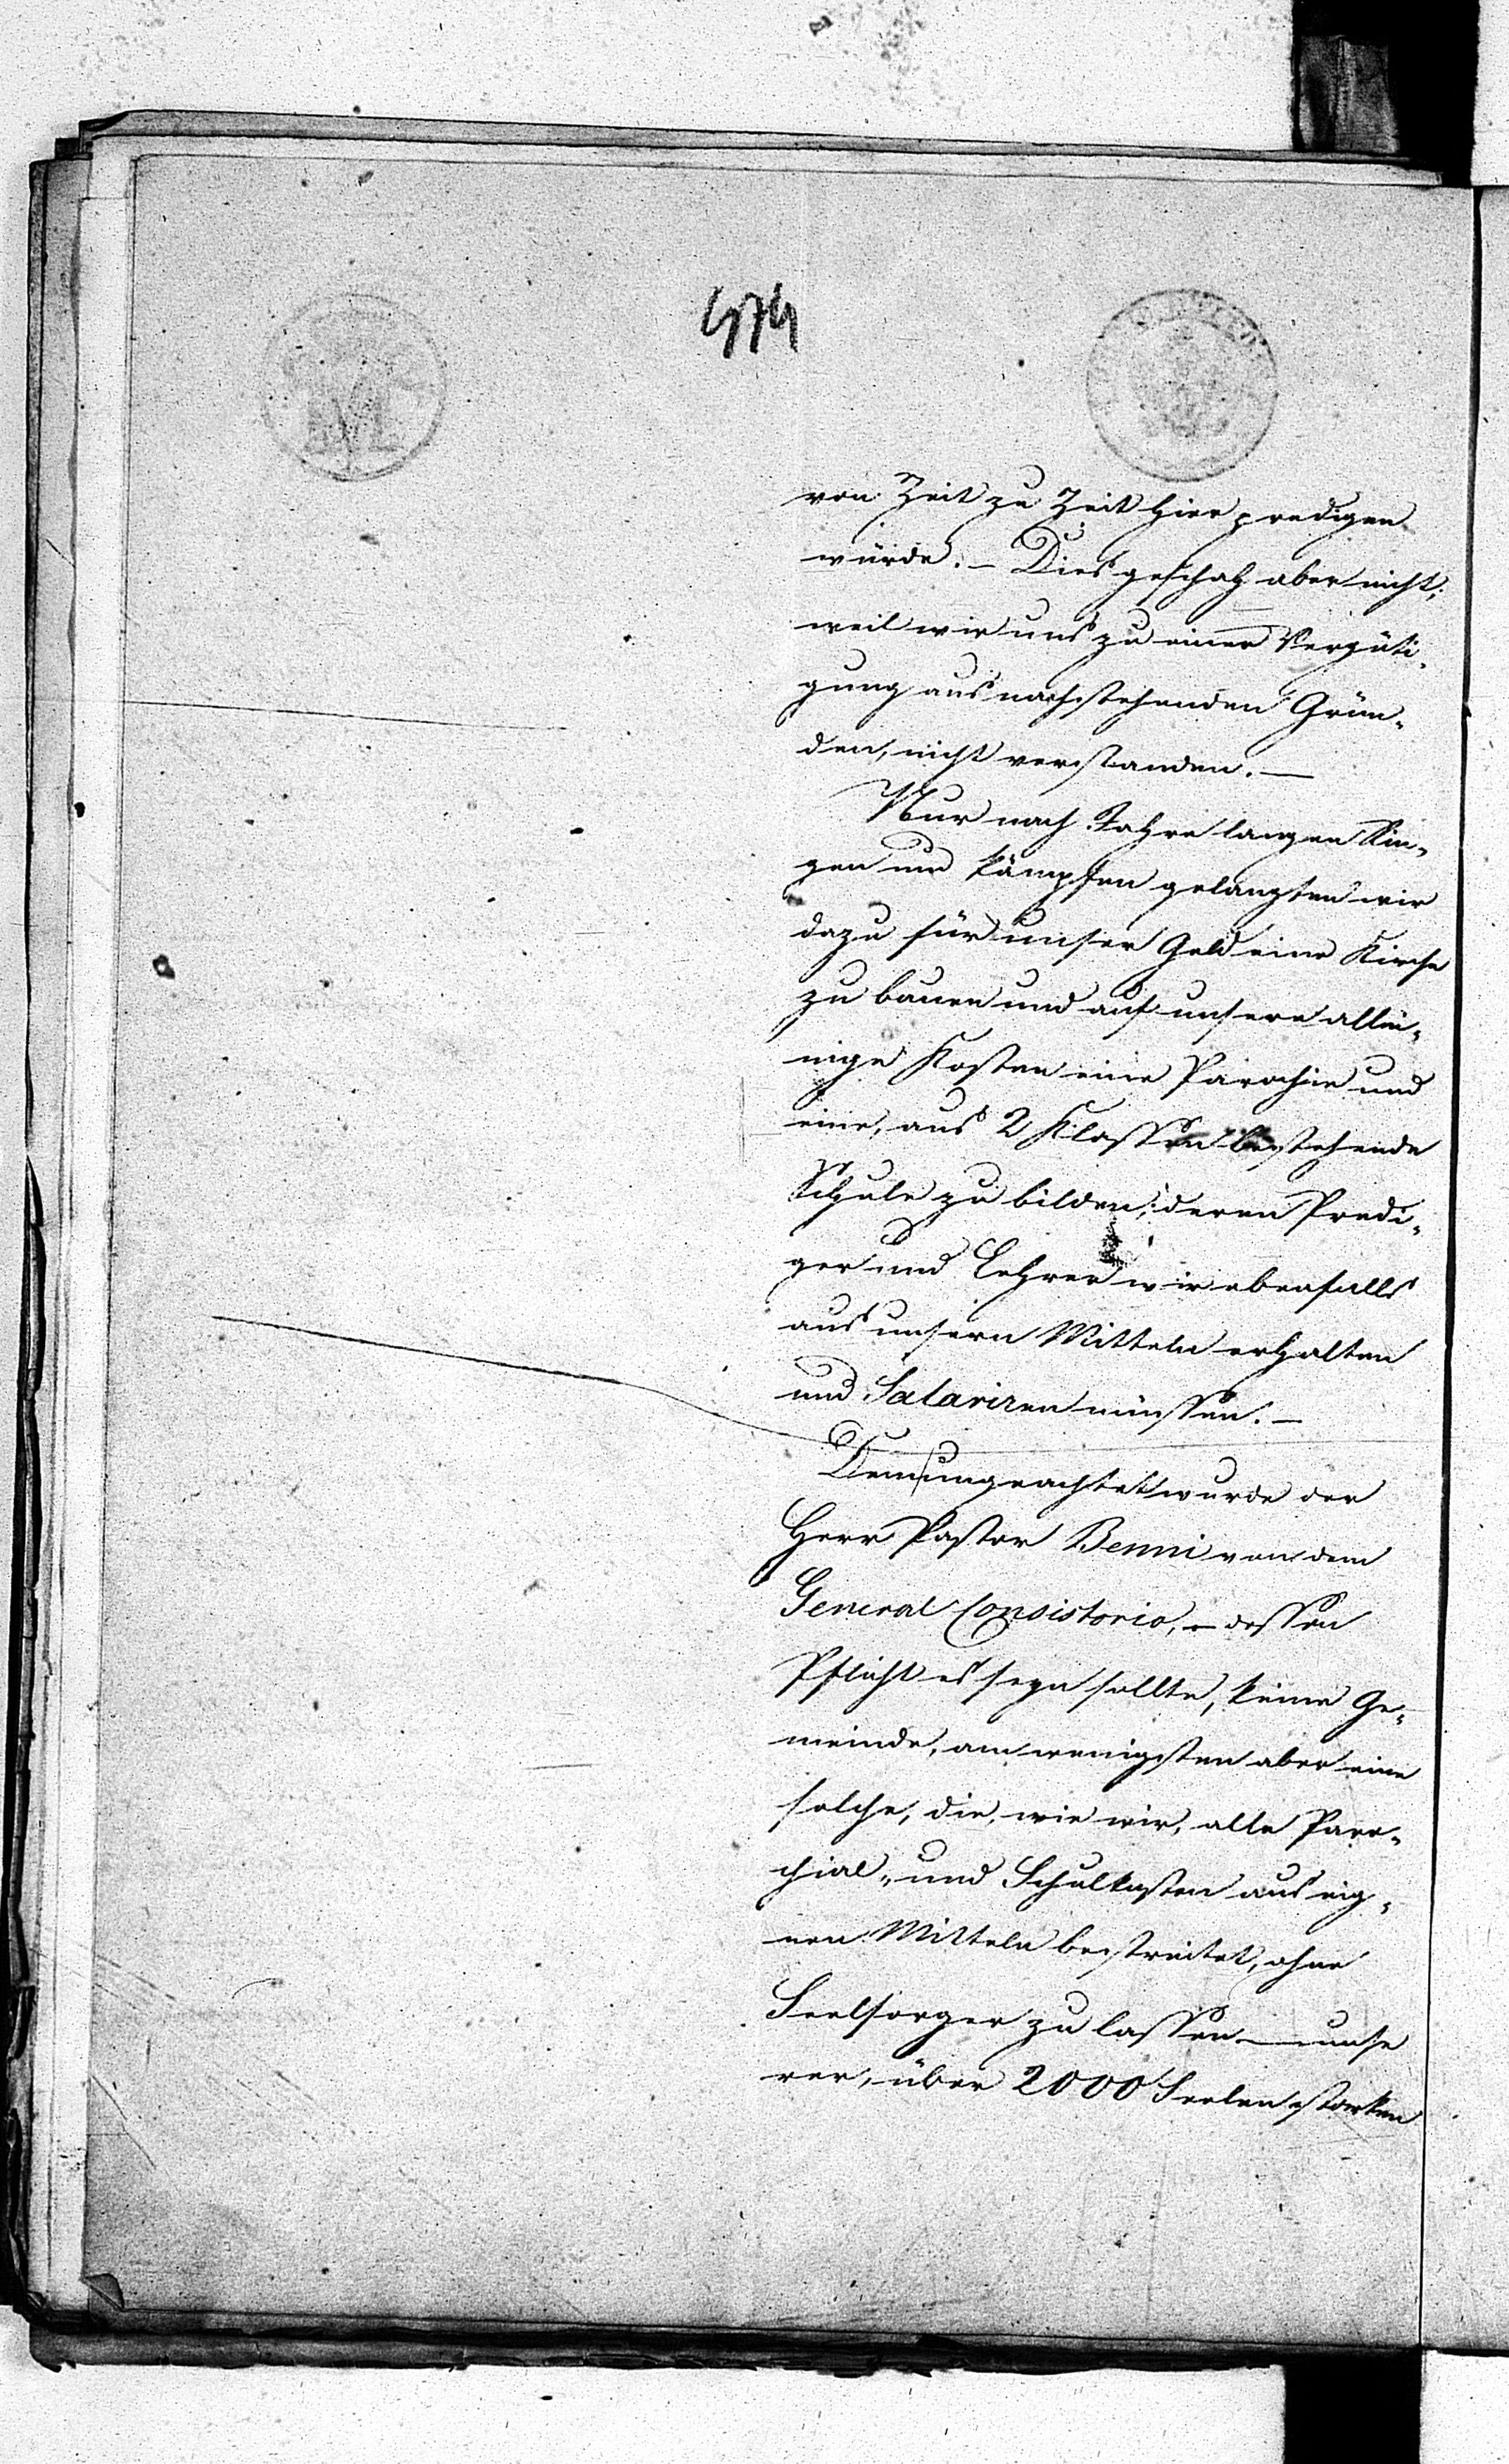 474
von Zeit zu Zeit hier predigen
würde. – Dies geschah aber nicht,
weil wir uns zu einer Vergüti-
gung aus nachstehenden Grün-
den, nicht verstanden. —
Nur nach Jahre langen Rin-
gen und kämpfen gelangten wir
dazu für unser Geld eine Kirche
zu bauen und auf unsere allei-
nige Kosten eine Parochie und
eine, aus 2 Klassen bestehende
Schule zu bilden, deren Predi-
ger und Lehrer wir ebenfalls
aus unsern Mitteln erhalten
und Salariren müssen. –
Demungeachtet wurde der
Herr Pastor Benni von dem
General Consistorio, – dessen
Pflicht es seyn sollte, keine Ge-
meinde, am wenigsten aber eine
solche, die, wie wir, alle Paro-
chial- und Schulkosten aus eig-
nen Mitteln bestreitet, ohne
Seelsorger zu lassen – unse
rer, über 2000 Seelen starken